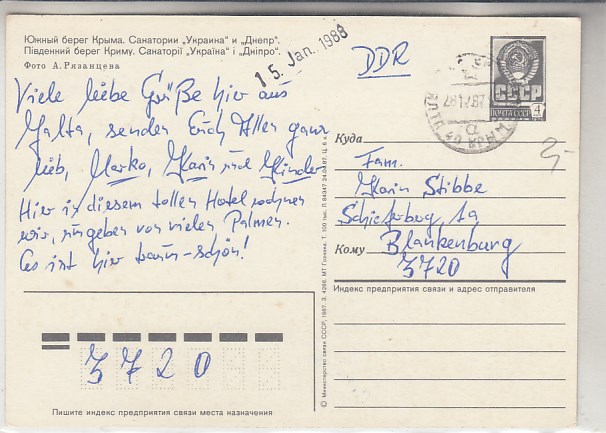 Южный берег Крыма. Санатории „Украина“ и „Днепр“.
Південний берег Криму. Санаторії „Україна“ і „Дніпро“.
Фото А. Рязанцева
15. Jan. 1988
DDR
СССР
ПОЧТА СССР
4
Viele liebe Grüße hier aus
Jalta, senden Euch Allen ganz
lieb, Marko, Karin und Kinder
Hier in diesem tollen Hotel wohnen
wir, umgeben von vielen Palmen.
Es ist hier traum-schön!
Куда
Fam.
Karin Stibbe
Schieferberg 1a
Кому Blankenburg
3720
Индекс предприятия связи и адрес отправителя
3720
Пишите индекс предприятия связи места назначения
© Министерство связи СССР, 1987.